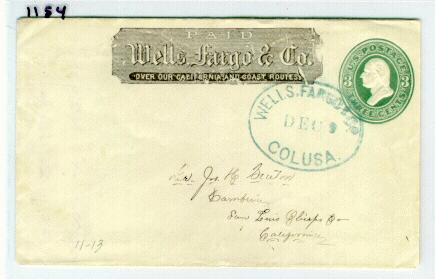 1154
PAID
Wells, Fargo & Co.
OVER OUR CALIFORNIA AND COAST ROUTES.
U.S. POSTAGE
THREE CENTS
WELLS, FARGO
DEC 9
COLUSA.
Jos. H.
San Luis Obispo Co
California
11-13